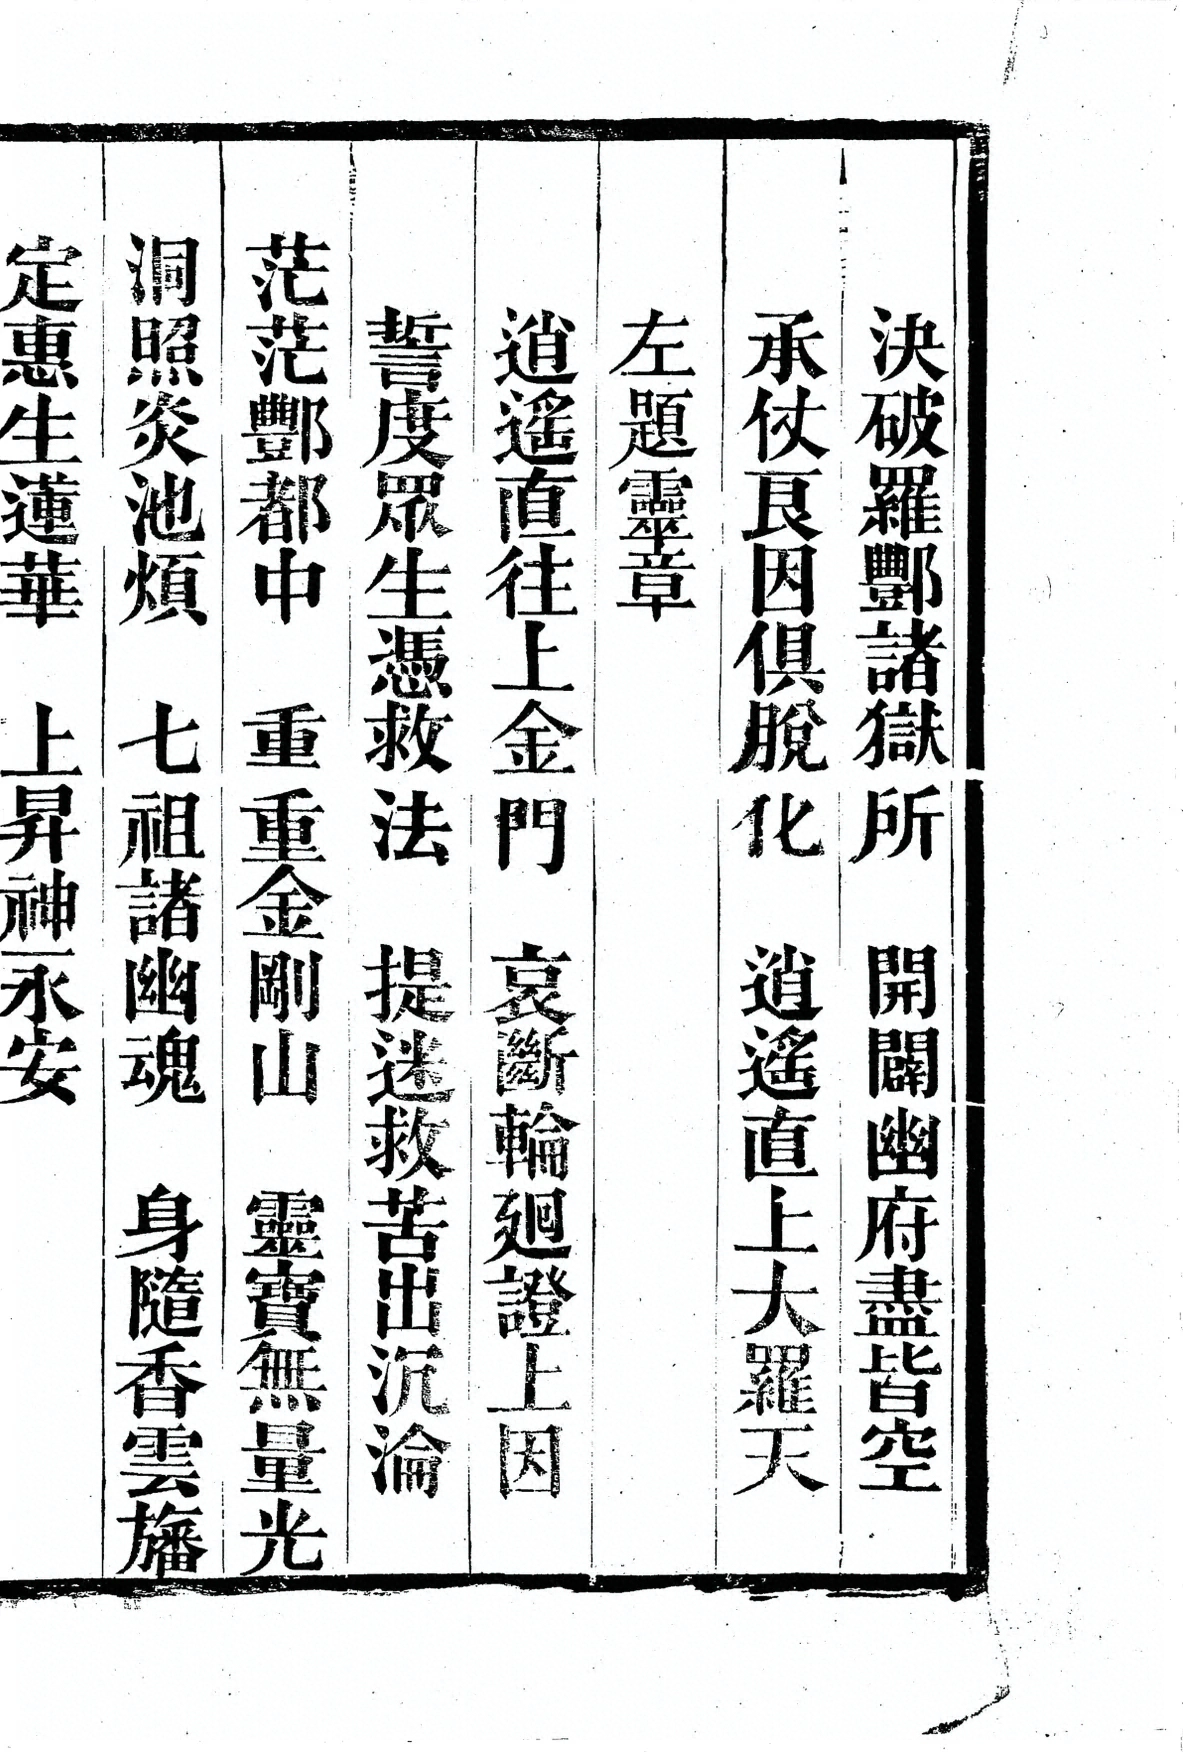 決破羅酆諸獄所　開闢幽府盡皆空
承仗良因俱脫化　逍遙直上大羅天
左題靈章
逍遙直往上金門　哀斷輪廻證上因
誓度眾生憑救法　提迷救苦出沉淪
茫茫酆都中　重重金剛山　靈寶無量光
洞照炎池煩　七祖諸幽魂　身隨香雲旛
定惠生蓮華　上昇神永安